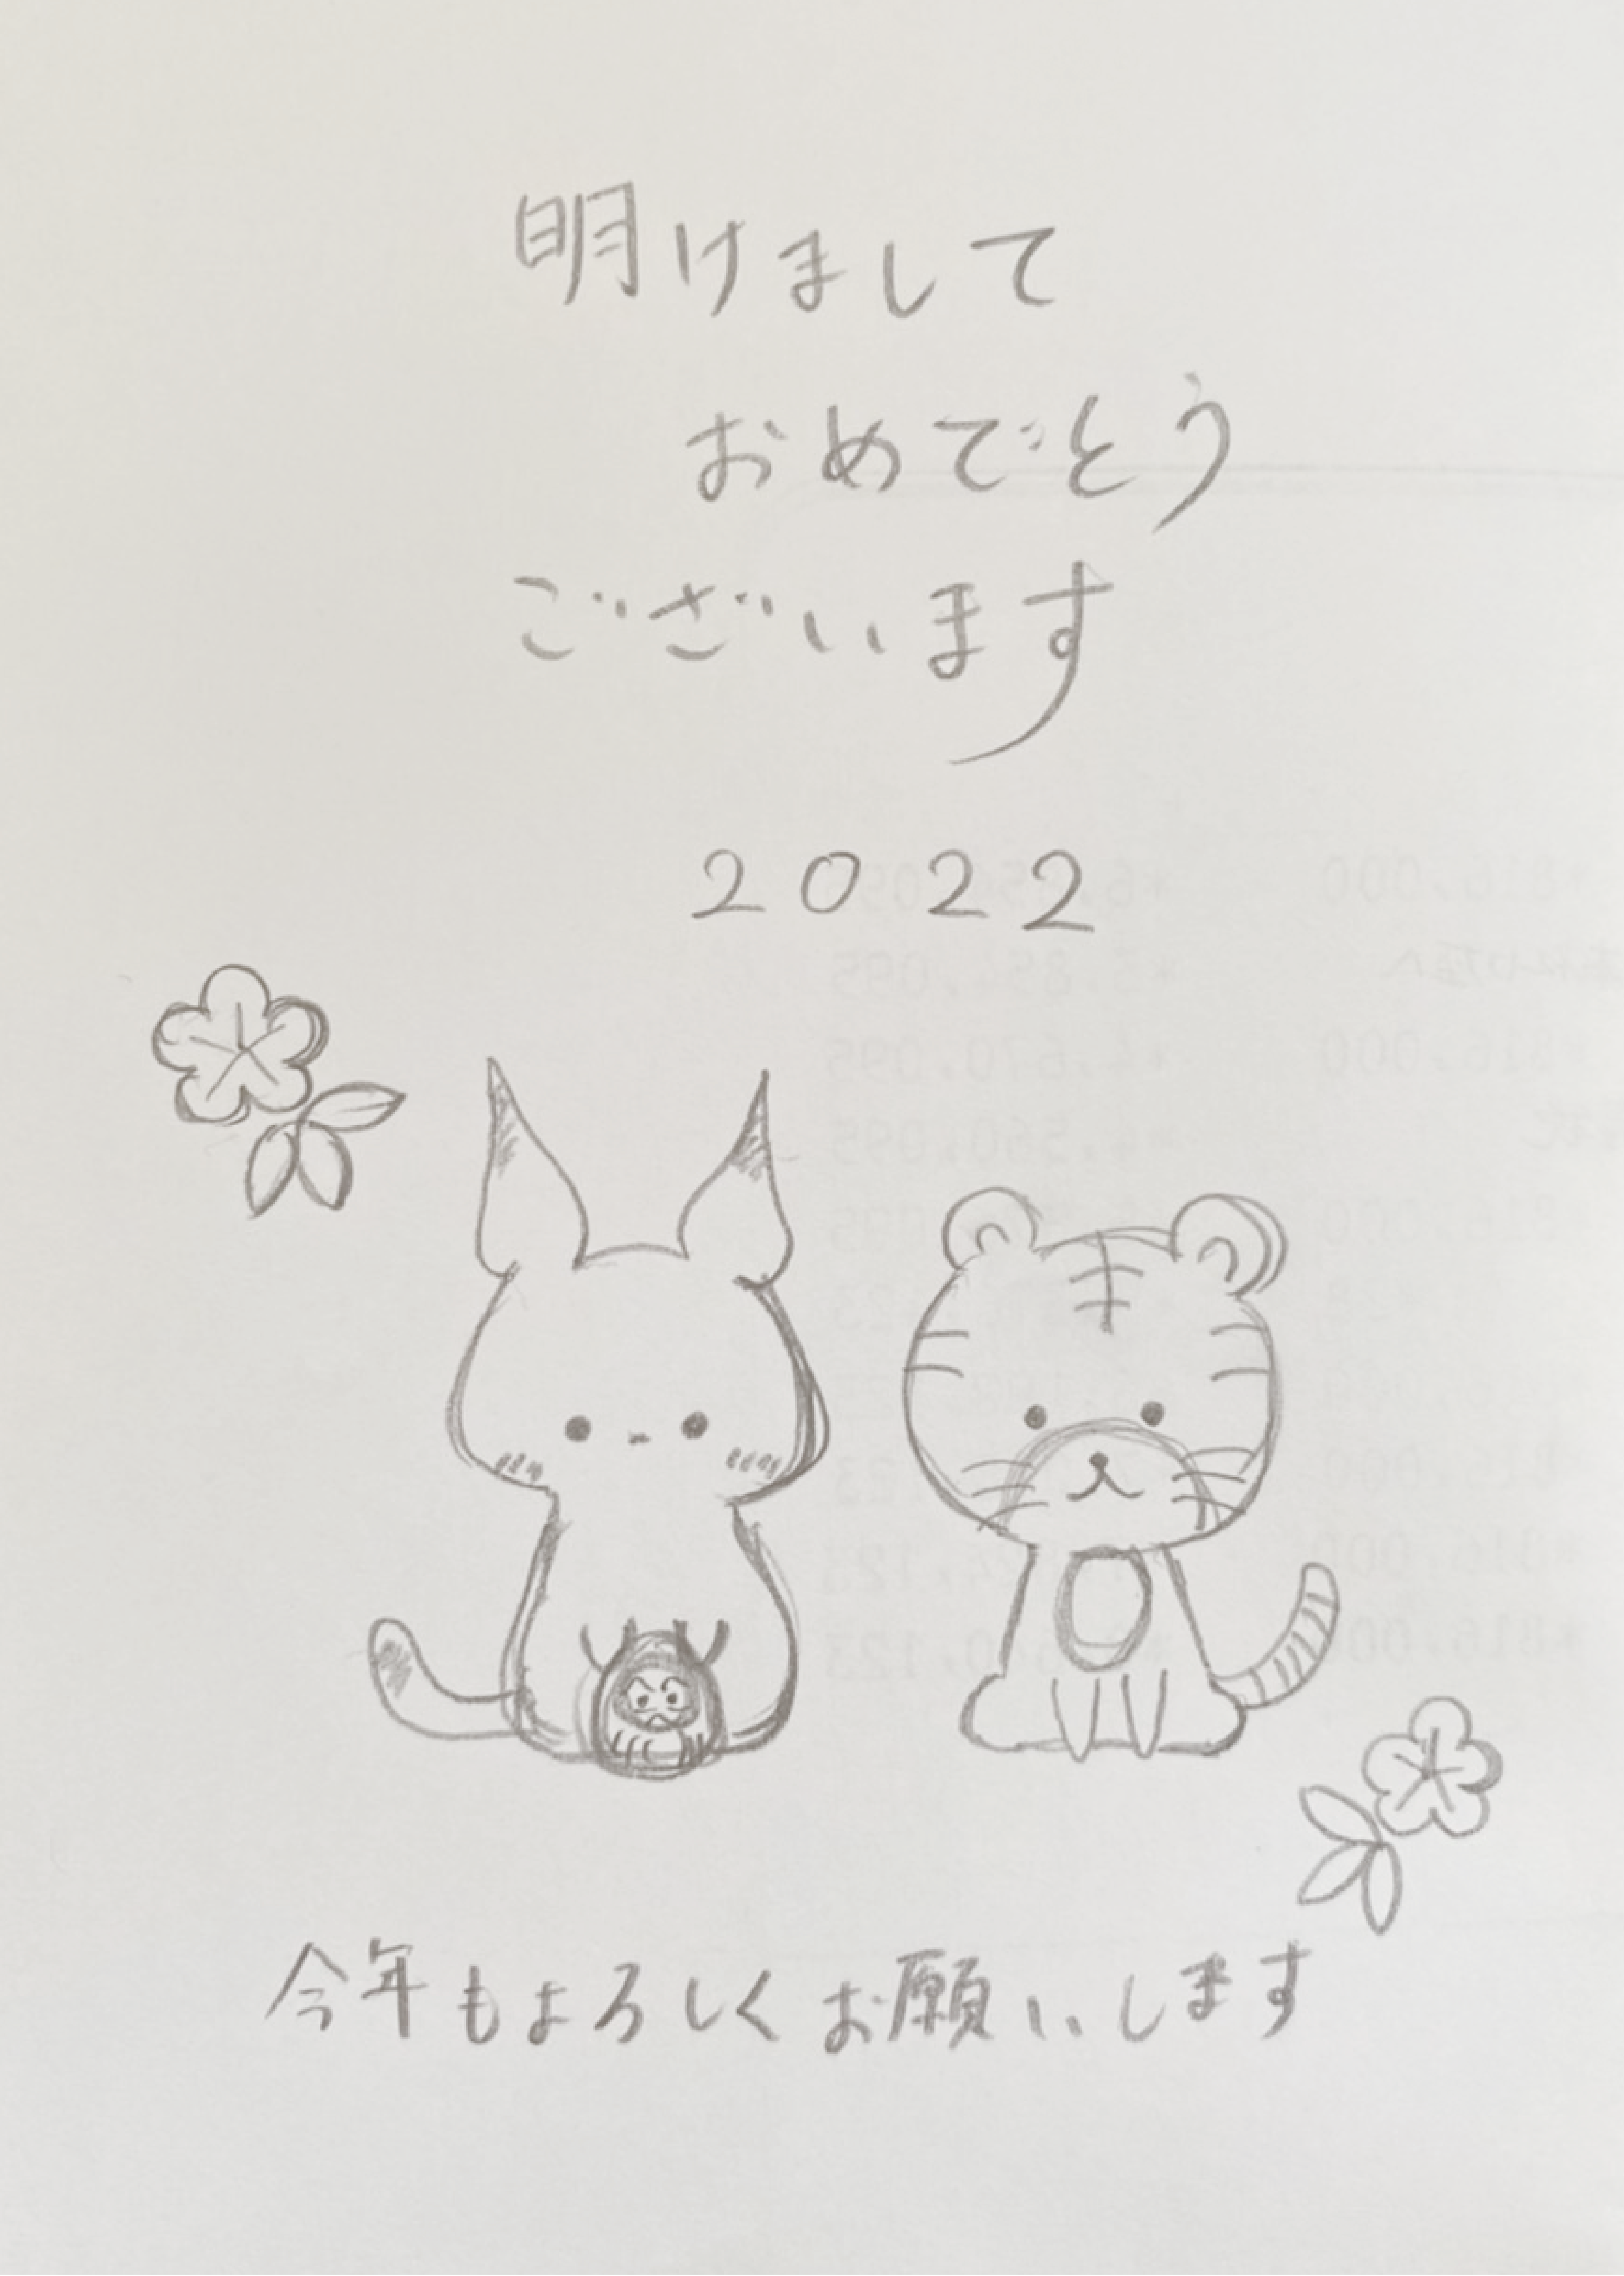 明けまして
おめでとう
ございます
2022
今年もよろしくお願いします